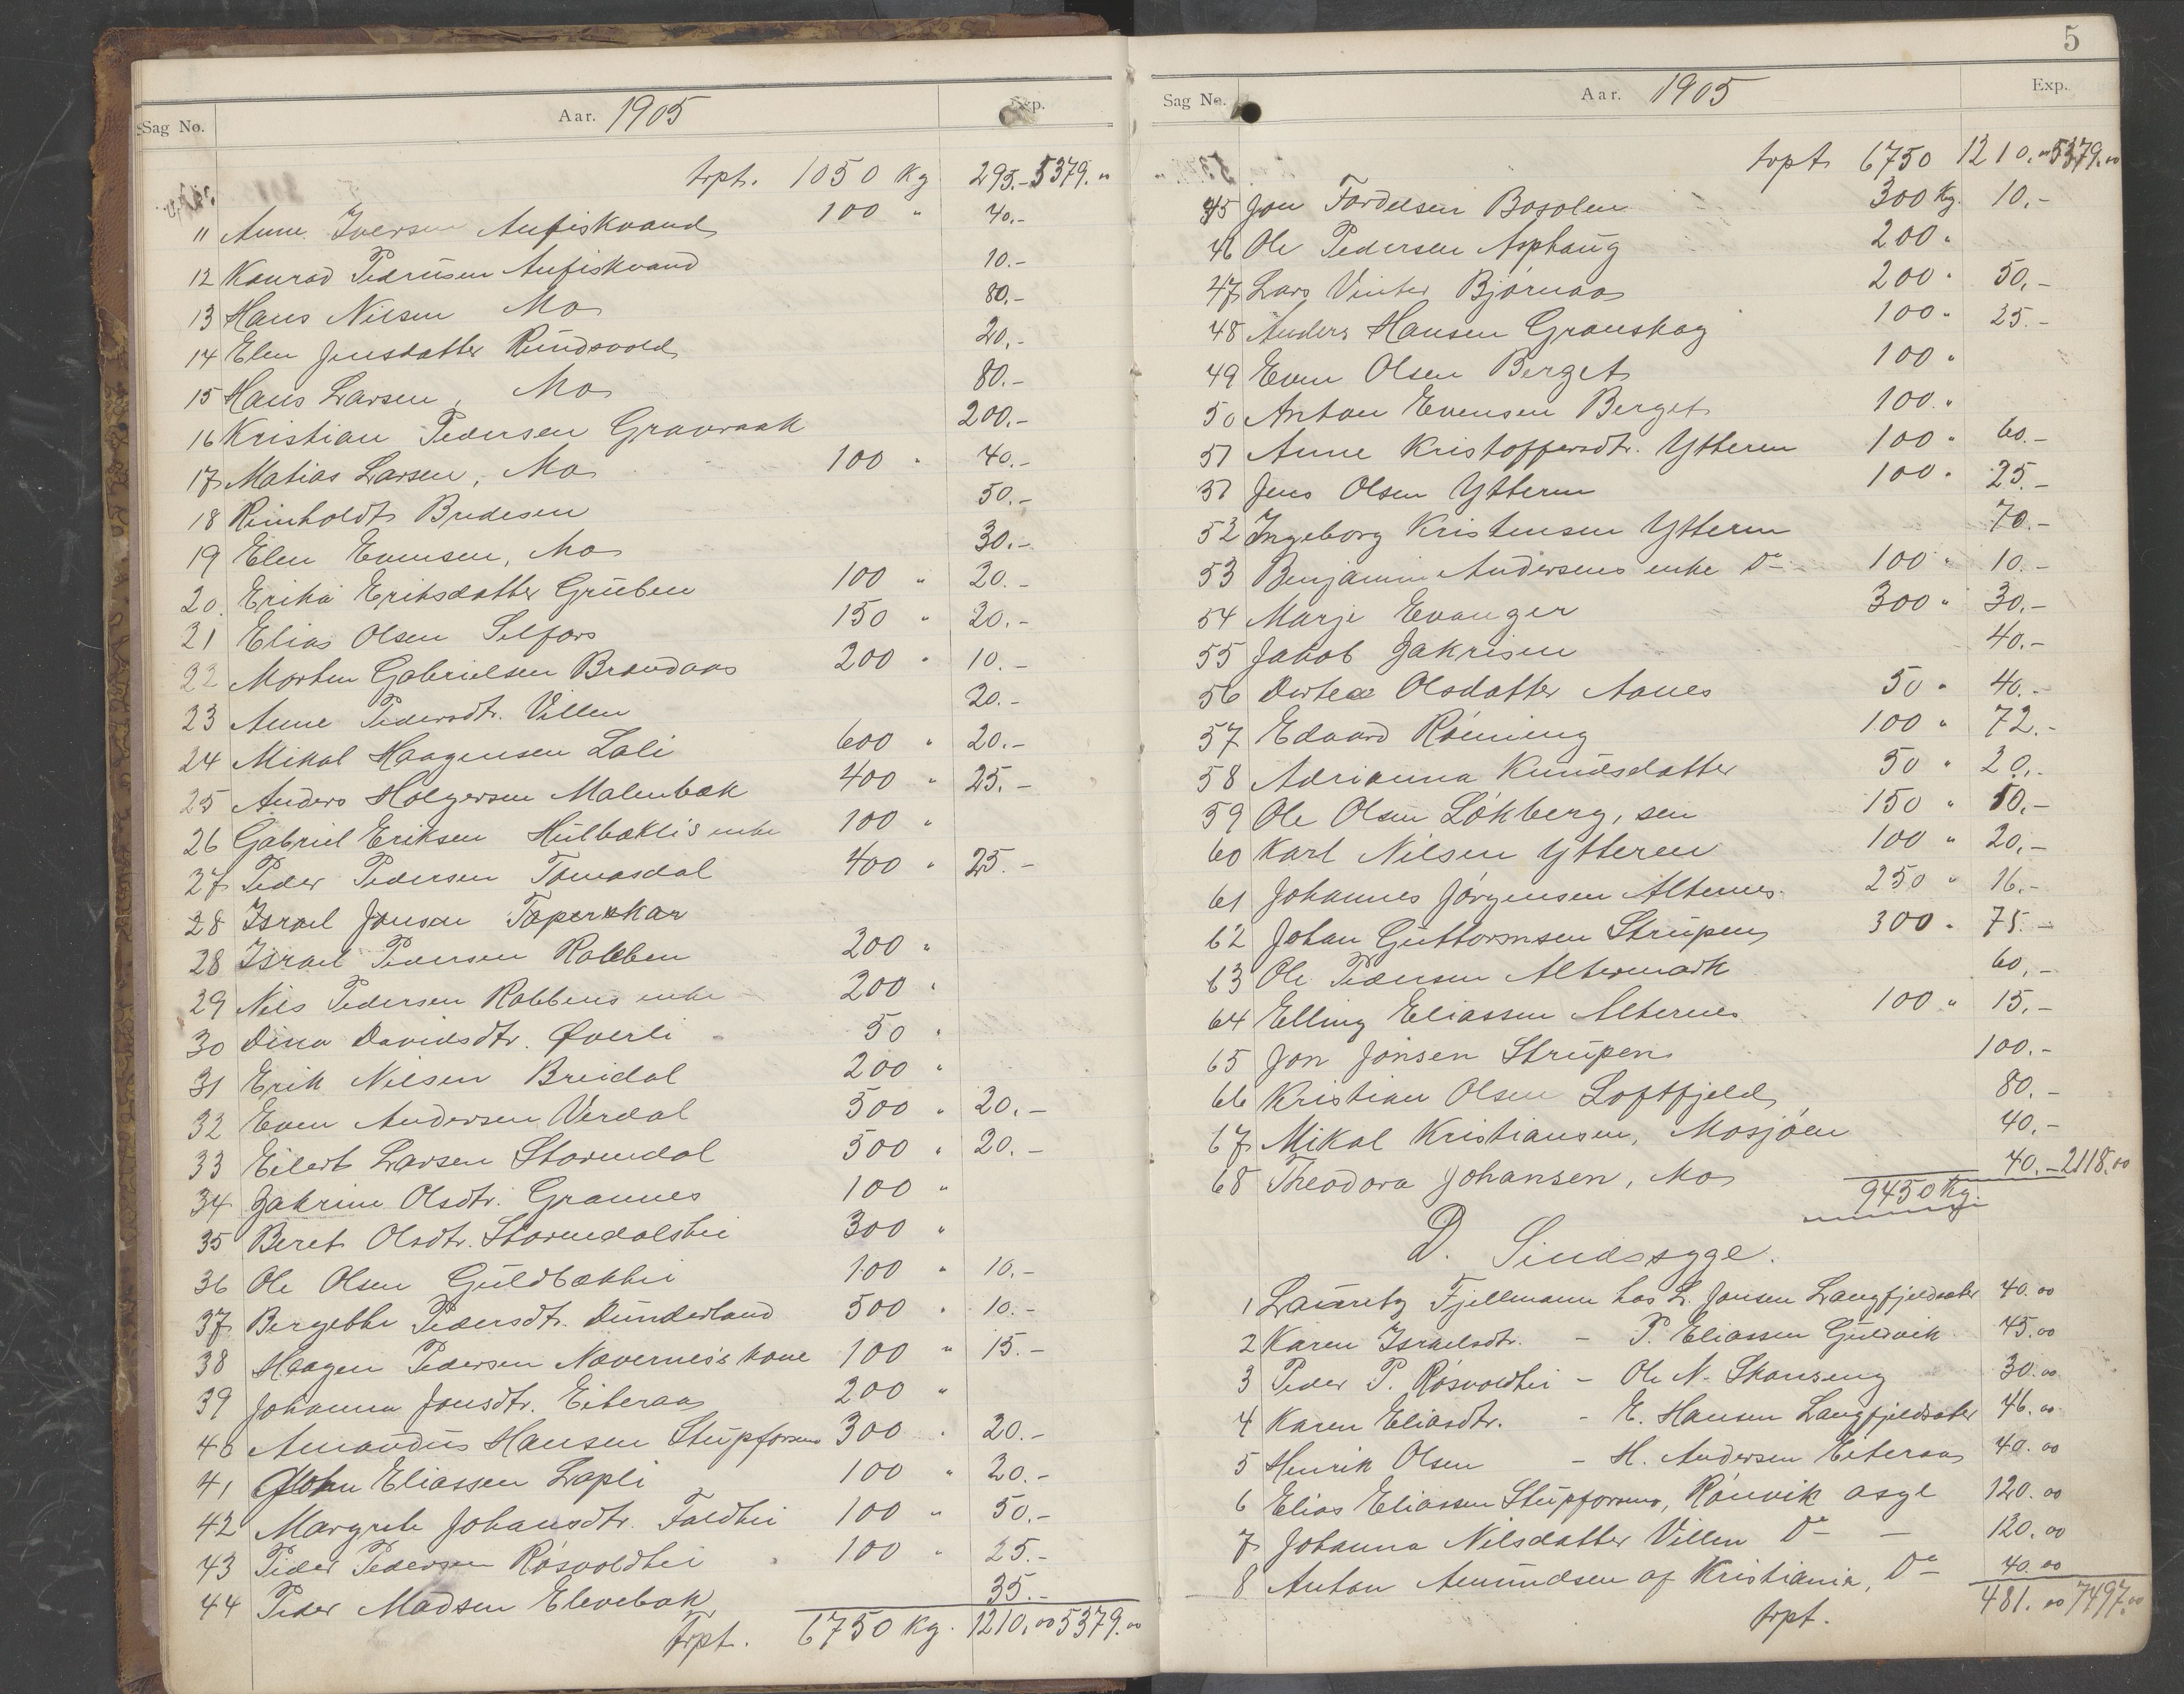 Sag No. Aar. 1905 Exp.
Trpt. 1050 Kg 295.- 5379.00
11 Anne Iversen Aufiskvand 100 " 40.-
12 Konrad Pedersen Aufiskvand 10.-
13 Hans Nilsen Mo 80.-
14 Elen Jensdatter Rundsvold 20.-
15 Hans Larsen, Mo 80.-
16 Kristian Pedersen Gravraak 200.-
17 Matias Larsen, Mo 100 " 40.-
18 Reinholdt Bredesen 50.-
19 Elen Evensen, Mo 30.-
20. Erika Eriksdatter Gruben 100 " 20.-
21 Elias Olsen Selfors 150 " 20.-
22 Morten Gabrielsen Brændaas 200 " 10.-
23 Anne Pedersdtr. Villen 20.-
24 Mikal Haagensen Lali 600 " 20.-
25 Anders Holgersen Malenbæk 400 " 25.-
26 Gabriel Eriksen Hulbæklis enke 100 "
27 Peder Pedersen Tomasdal 400 " 25.-
28 Israel Jonsen Toperskar
28 Israel Pedersen Rabben 200 "
29 Nils Pedersen Rabbens enke 200 "
30 Dina Davidsdtr. Øverli 50 "
31 Erik Nilsen Breidal 200 "
32 Even Andersen Verdal 500 " 20.-
33 Eilert Larsen Stormdal 500 " 20.-
34 Zakrine Olsdtr. Grannes 100 "
35 Beret Olsdtr. Stormdalshei 300 "
36 Ole Olsen Guldbækhei 100 " 10.-
37 Bergethe Pedersdtr. Dunderland 500 " 10.-
38 Haagen Pedersen Nævernes's kone 100 " 15.-
39 Johanna Jonsdtr. Eiteraa 200 "
40 Amandus Hansen Stupforsmo 300 " 20.-
41 John Eliassen Lapli 100 " 20.-
42 Margrete Johansdtr. Foldhei 100 " 50.-
43 Peder Pedersen Røsvoldhei 100 " 25.-
44 Peder Madsen Elvebak 35.-
Trpt. 6750 Kg. 1210.00 5379.00
5
Sag No. Aar. 1905 Exp.
trpt 6750 1210.00 5379.00
45 Jon Fordelsen Bosolen 300 Kg. 10.-
46 Ole Pedersen Asphaug 200 "
47 Lars Vinter Bjørnaa 200 " 50.-
48 Anders Hansen Granskog 100 " 25.-
49 Even Olsen Berget 100 "
50 Anton Evensen Berget 100 "
51 Anne Kristoffersdtr. Ytteren 100 " 60.-
51 Jens Olsen Ytteren 100 " 25.-
52 Ingeborg Kristensen Ytteren 70.-
53 Benjamin Andersens enke Do 100 " 10.-
54 Marje Evanger 300 " 30.-
55 Jakob Zakrisen 40.-
56 Dortea Olsdatter Aanes 50 " 40.-
57 Edvard Rønning 100 " 72.-
58 Adrianna Knudsdatter 50 " 20.-
59 Ole Olsen Løkberg, sen 150 " 50.-
60 Karl Nilsen Ytteren 100 " 20.-
61 Johannes Jørgensen Alternes 250 " 16.-
62 Johan Guttormsen Strupen 300 " 75.-
63 Ole Pedersen Altermark 60.-
64 Elling Eliassen Alternes 100 " 15.-
65 Jon Jonsen Strupen 100.-
66 Kristian Olsen Loftfjeld 80.-
67 Mikal Kristiansen, Mosjøen 40.-
68 Theodora Johansen, Mo 40.- 2118.00
9450 Kg.
D. Sindssyge.
1 Lauritz Fjellmann hos L. Jonsen Langfjeldsæter 40.00
2 Karen Israelsdtr. - P. Eliassen Guldvik 45.00
3 Peder P. Røsvoldhei - Ole N. Skanseng 30.00
4 Karen Eliasdtr. - E. Hansen Langfjeldsæter 46.00
5 Henrik Olsen - H. Andersen Eiteraa 40.00
6 Elias Eliassen Stupforsmo, Rønvik asyl 120.00
7 Johanna Nilsdatter Villen Do - 120.00
8 Anton Amundsen af Kristiania, Do - 40.00
trpt. 481.00 7497.00